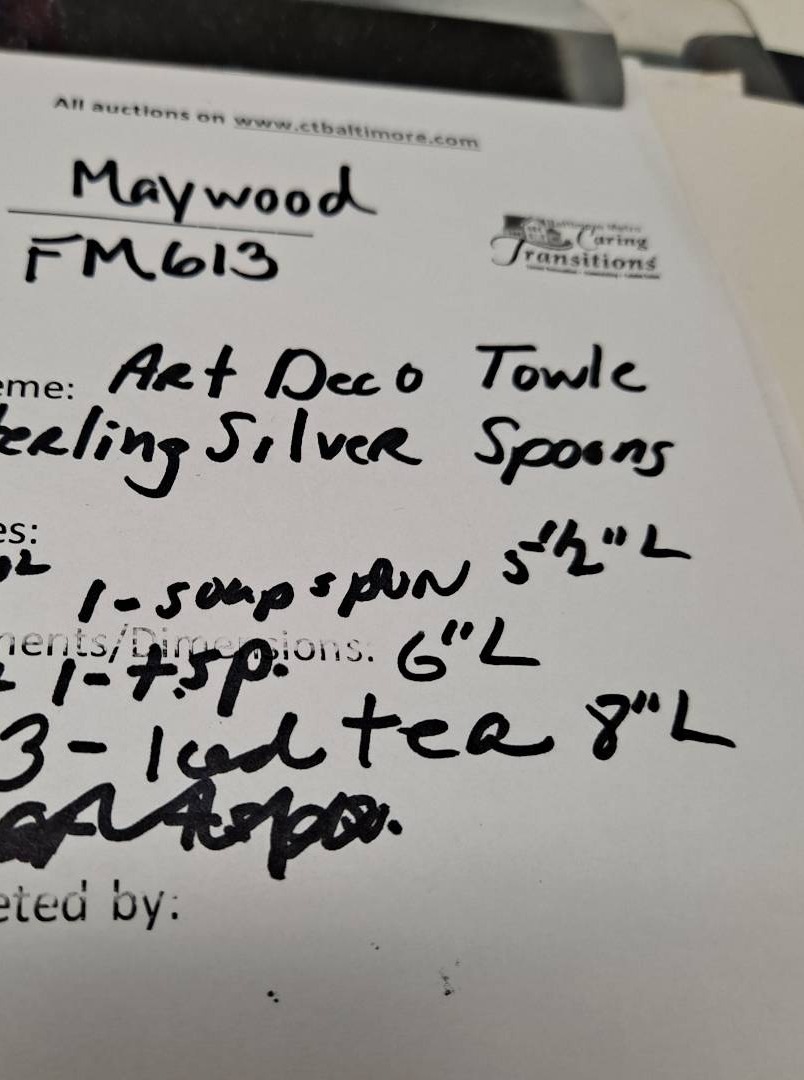 All auctions on www.ctbaltimore.com
Maywood
FM613
Caring
Transitions
eme: Art Deco Towle
erling Silver Spoons
es:
1-soup spun 5-1/2" L
ments/Dimensions: 6" L
1-tsp.
3-Iced tea 8" L
eted by: